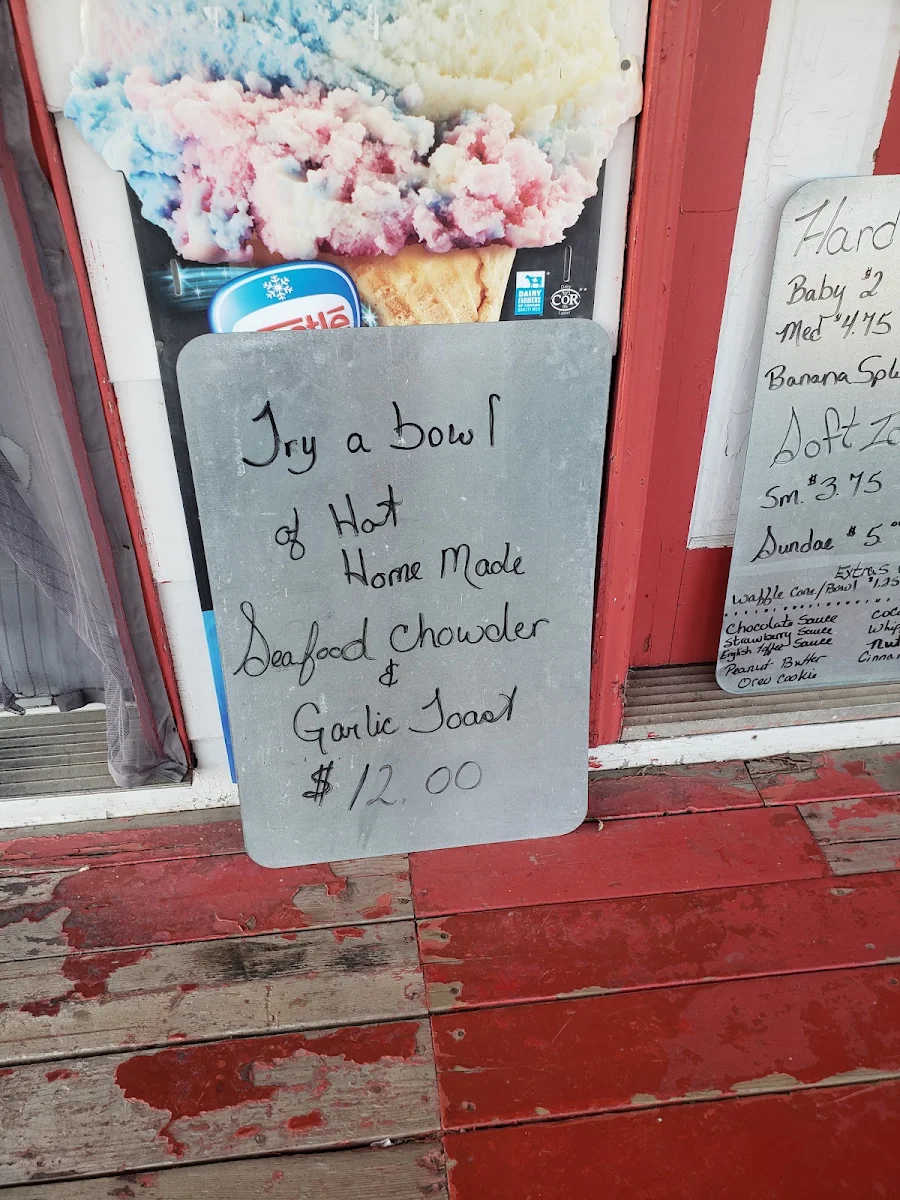 DAIRY
FARMERS
COR
Try a bowl
of Hot
Home Made
Seafood Chowder
&
Garlic Toast
$12.00
Hard
Baby $2
Med $4.75
Banana
Soft
Sm. $3.75
Sundae $5.
Extras
Waffle Cone/Bowl $1.25
Chocolate Sauce
Strawberry Sauce
English Toffee Sauce
Peanut Butter
Oreo Cookie